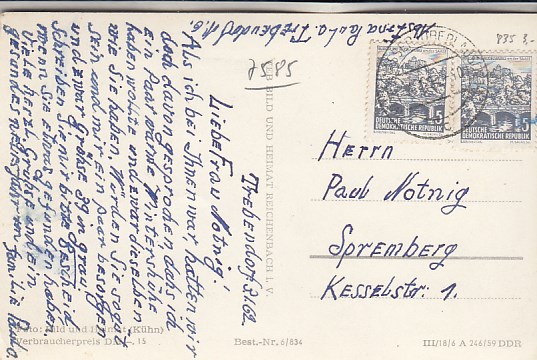 Abs. Erna Paula. Trebendorf N.6.
835 3,-
7585
VERLAG BILD UND HEIMAT REICHENBACH I. V.
Trebendorf. 3/62
Liebe Frau Notnig!
Als ich bei Ihnen war hatten wir
doch davon gesprochen daß ich
ein Paar warme Winterschuhe
haben wollte und zwar dieselben
wie Sie haben. Würden Sie so gut
sein und mir ein paar besorgen
und zwar Größe 39 in grau
Schreiben Sie mir bitte Bescheid
wenn Sie etwas gefunden haben.
Viele herzl. Grüße und ein
gesundes
DEUTSCHE
DEMOKRATISCHE REPUBLIK
15
DEUTSCHE
DEMOKRATISCHE REPUBLIK
15
Herrn
Paul Notnig
Spremberg
Kesselstr. 1.
Foto: Bild und Heimat (Kühn)
Verbraucherpreis DM -, 15
Best.-Nr. 6/834
III/18/6 A 246/59 DDR